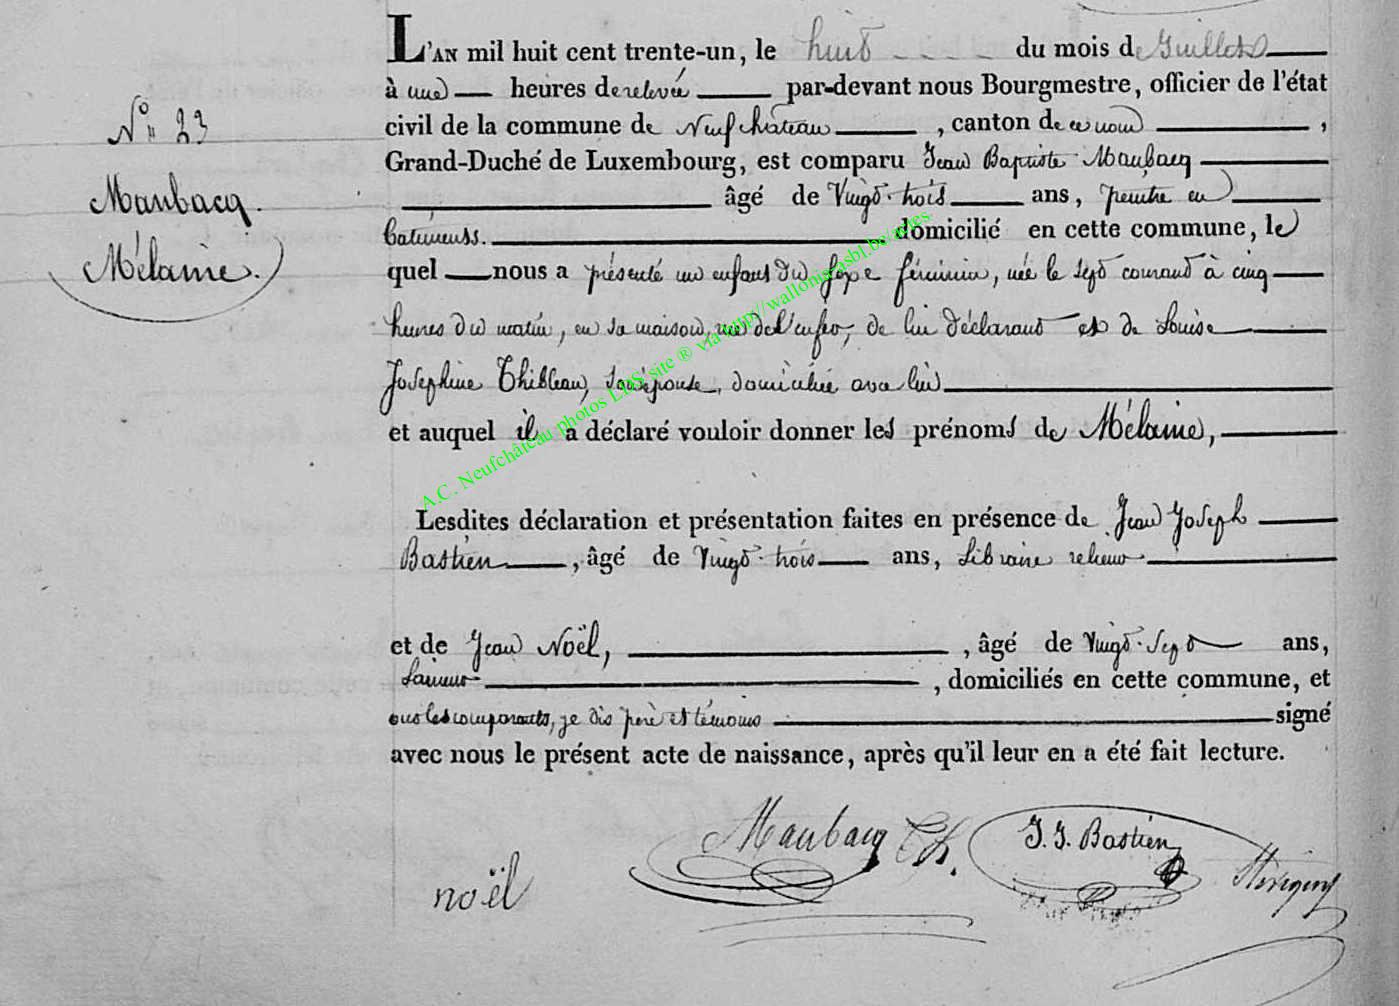 L'AN mil huit cent trente-un, le huit du mois de Juillet
à une heures de relevée par-devant nous Bourgmestre, officier de l'état
N° 23
civil de la commune de Neufchâteau, canton de ce nom,
Grand-Duché de Luxembourg, est comparu Jean Baptiste Maubacq
Maubacq.
âgé de Vingt-trois ans, peintre en
batiments. domicilié en cette commune, le
Mélanie.
quel nous a présenté un enfant du sexe féminin, née le sept courant à cinq
heures du matin, en sa maison, rue de l'enfer, de lui déclarant et de Louise
Josephine Thibleau, son épouse, domiciliée avec lui
et auquel il a déclaré vouloir donner les prénoms de Mélanie,
A.C. Neufchâteau photos LDS site ® via http://wallonia.asbl.be/actes
Lesdites déclaration et présentation faites en présence de Jean Joseph
Bastien, âgé de Vingt-trois ans, Libraire relieur
et de Jean Noël, âgé de Vingt-Sept ans,
domiciliés en cette commune, et
ous les comparants, je dis père et témoins signé
avec nous le présent acte de naissance, après qu'il leur en a été fait lecture.
Maubacq Th. J. J. Bastien
noël